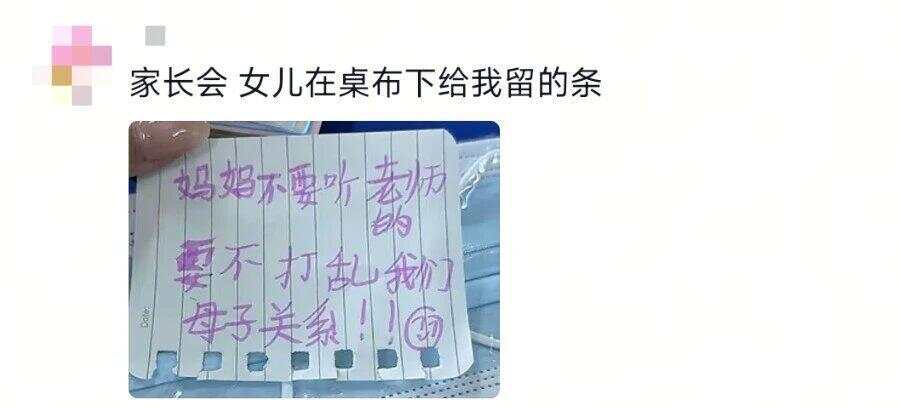 家长会 女儿在桌布下给我留的条
妈妈不要听老师
的
要不打乱我们
母子关系！！
Date: